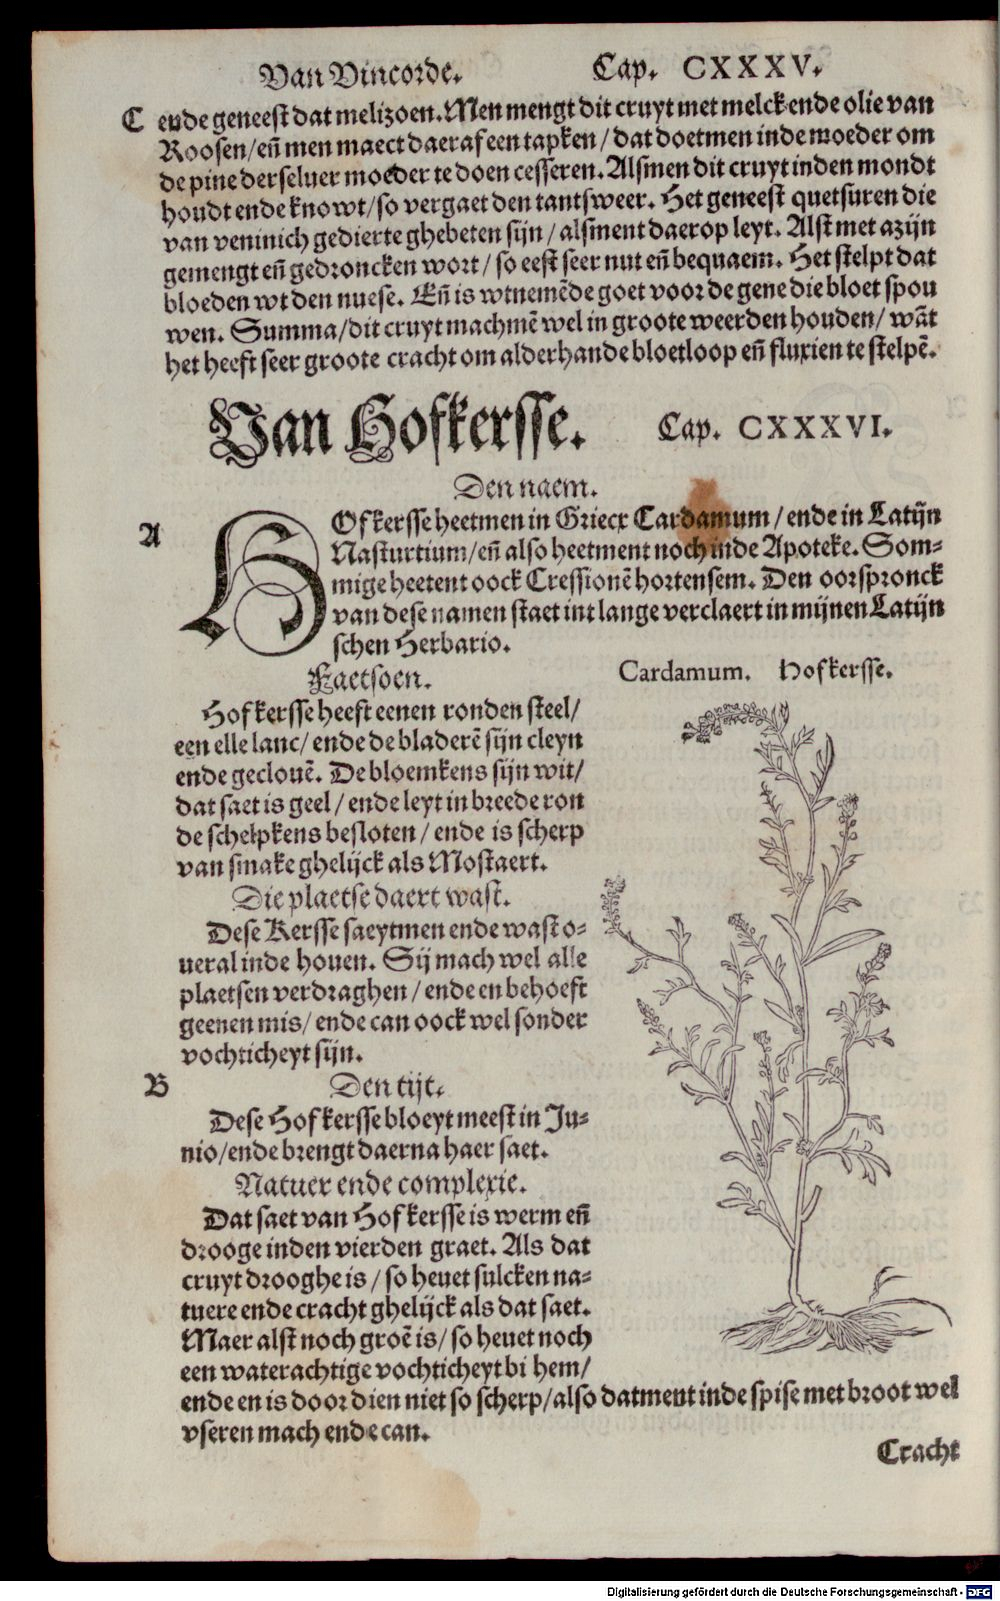 Van Vincorde. Cap. CXXXV.
C ende geneest dat melizoen. Men mengt dit cruyt met melck ende olie van
Roosen/ eñ men maect daeraf een tapken/ dat doetmen inde moeder om
de pine der seluer moeder te doen cesseren. Alsmen dit cruyt inden mondt
houdt ende knowt/ so vergaet den tantsweer. Het geneest quetsuren die
van veninich gedierte ghebeten sijn/ alsment daer op leyt. Alst met azijn
gemengt eñ gedroncken wort/ so eest seer nut eñ bequaem. Het stelpt dat
bloeden wt den nuese. Eñ is wtnemēde goet voor de gene die bloet spou
wen. Summa/ dit cruyt machmē wel in groote weerden houden/ wāt
het heeft seer groote cracht om alderhande bloetloop eñ fluxien te stelpē.
Van Hofkersse. Cap. CXXXVI.
Den naem.
A HOfkersse heetmen in Griecx Cardamum/ ende in Latijn
Nasturtium/ eñ also heetment noch inde Apoteke. Som-
mige heetent oock Cressionē hortensem. Den oorspronck
van dese namen staet int lange verclaert in mijnen Latijn
schen Herbario.
Faetsoen.
Cardamum. Hofkersse.
Hofkersse heeft eenen ronden steel/
een elle lanc/ ende de bladerē sijn cleyn
ende geclouē. De bloemkens sijn wit/
dat saet is geel/ ende leyt in breede ron
de schelpkens besloten/ ende is scherp
van smake ghelijck als Mostaert.
Die plaetse daert wast.
Dese Kersse saeytmen ende wast o-
ueral inde houen. Sij mach wel alle
plaetsen verdraghen/ ende en behoeft
geenen mis/ ende can oock wel sonder
vochticheyt sijn.
B Den tijt.
Dese Hofkersse bloeyt meest in Ju-
nio/ ende brengt daerna haer saet.
Natuer ende complexie.
Dat saet van Hofkersse is werm eñ
drooge inden vierden graet. Als dat
cruyt drooghe is/ so heuet sulcken na-
tuere ende cracht ghelijck als dat saet.
Maer alst noch groē is/ so heuet noch
een waterachtige vochticheyt bi hem/
ende en is door dien niet so scherp/ also datment inde spise met broot wel
vseren mach ende can.
Cracht
Digitalisierung gefördert durch die Deutsche Forschungsgemeinschaft - DFG